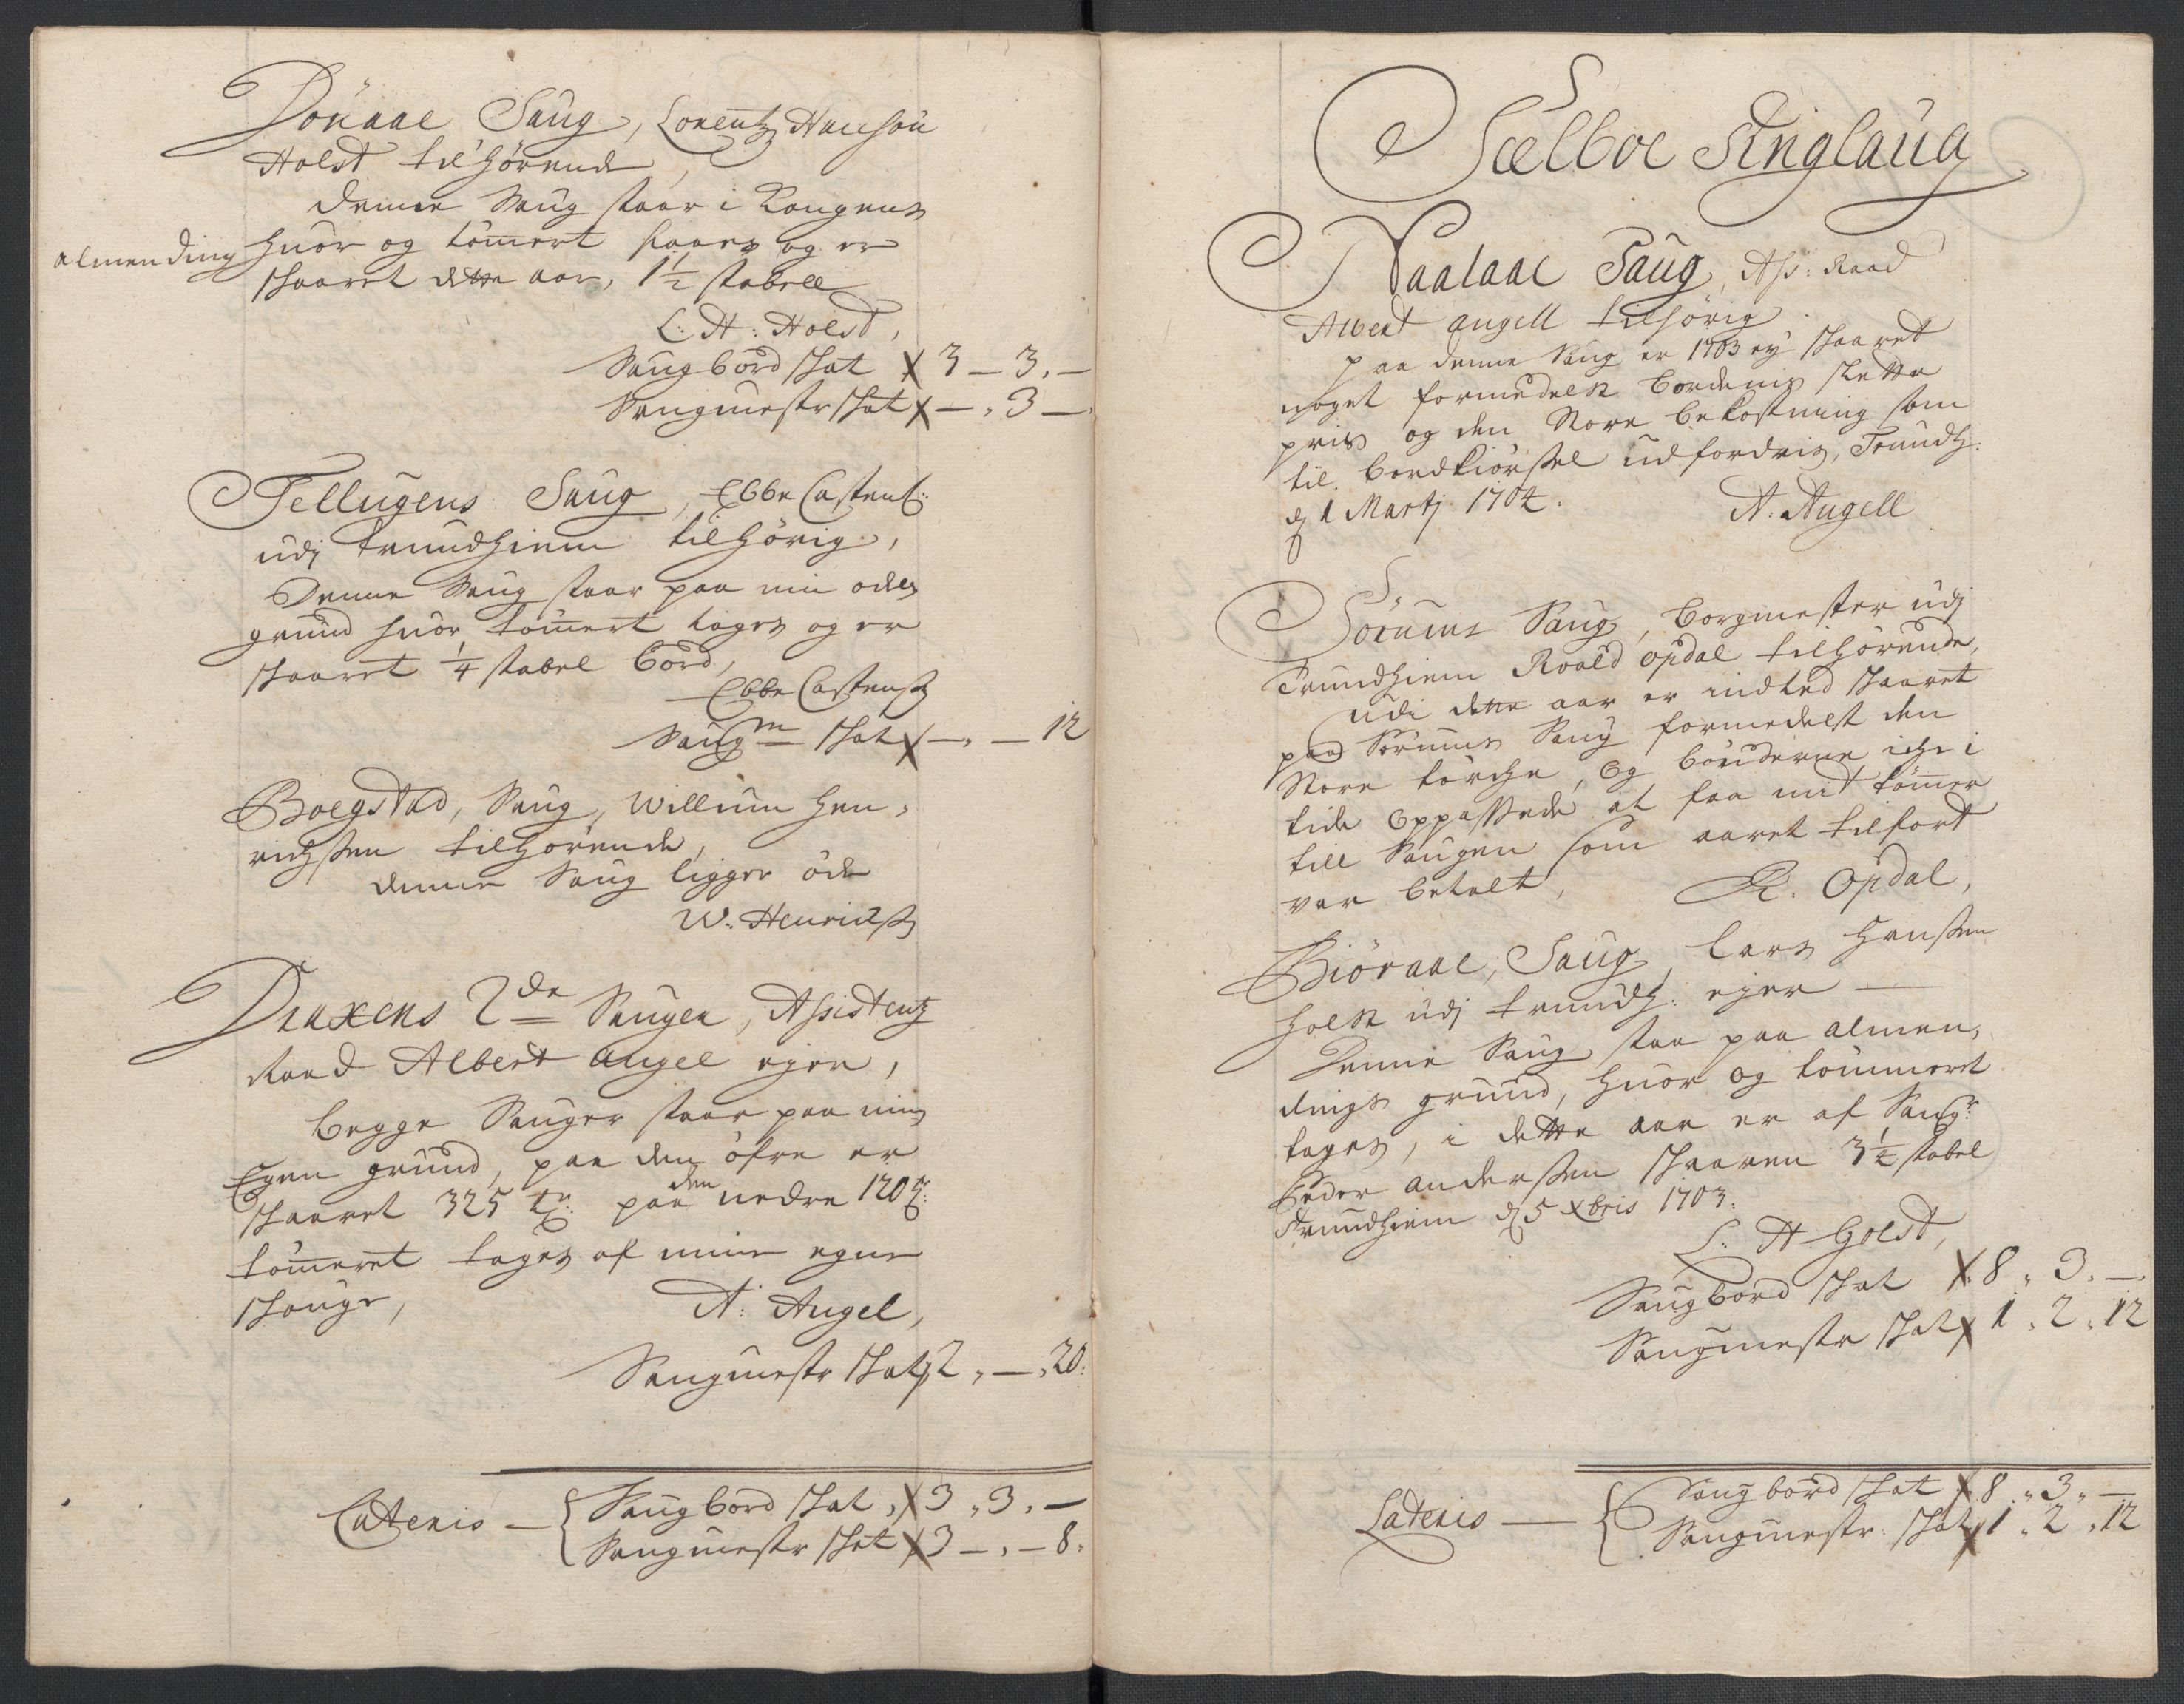 Dönaae Saug, Lorentz Hanson
Holst tilhörende,
denne Saug staar i Kongens
almending huor og tömert faaes og er
skaaret dette aar, 1½ stabell
L: H: Holst,
Saugbord skat 3 – 3. –
Saugmestr skat – . 3 –
Tellugens Saug, Ebbe Castens:
udj Trundhiem tilhörig,
Denne Saug staar paa min odels
grund huor tömert tages og er
skaaret ¼ stabel bord,
Ebbe Castenss
Saugm skat – . – 12
Boegstad, Saug, Willum Hen,
richssen tilhörende,
denne Saug ligger öde
W: Henrichss
Draxens 2de Sauger, Assistentz
Raad Albert Angel ejer,
begge Sauger staar paa min
Egen grund, paa den öfre er
skaaret 325 tr: paa den nedre 120 tr:
tömeret tages af mine egne
skouge,
A: Angel,
Saugmestr skat 2 „ – „ 20:
Lateris – Saugbord skat „ 3 „ 3 „ –
Saugmestr skat 3 – „ – 8.
Sælboe Tinglaug
Naalaae Saug, Ass: Raad
Albert Angell tilhörig
paa denne Saug er 1703 ej skaaret
noget formedelst bordenis slette
pris og den store bekostning som
til bordkiörssel udfordris, Trundh:
d 1 Martj 1704.
A. Angell
Sörums Saug, borgmester udj
Trundhiem Roald Opdal tilhörende,
udi dette aar er indted skaaret
paa Sörums Saug formedelst den
store törche, og bönderne iche i
tide oppassede at faa mit tömer
till Saugen som aaret tilfort
var betalt,
R. Opdal,
Biöraae, Saug, Lars Hanssen
Holst udj Trundh: ejer —
Denne Saug staa paa almen,
dings grund, huor og tömmeret
tages, i dette aar er af Saugr:
Peder Anderssen skaaren 3¼ stabel
Trundhiem d 5 Xbris 1703.
L: H Holst,
Saugbord skat 8 „ 3. –.
Saugmestr skat 1 „ 2 „ 12
Lateris — Saugbord skat 8 „ 3 „ –
Saugmestr: skat 1 „ 2 „ 12